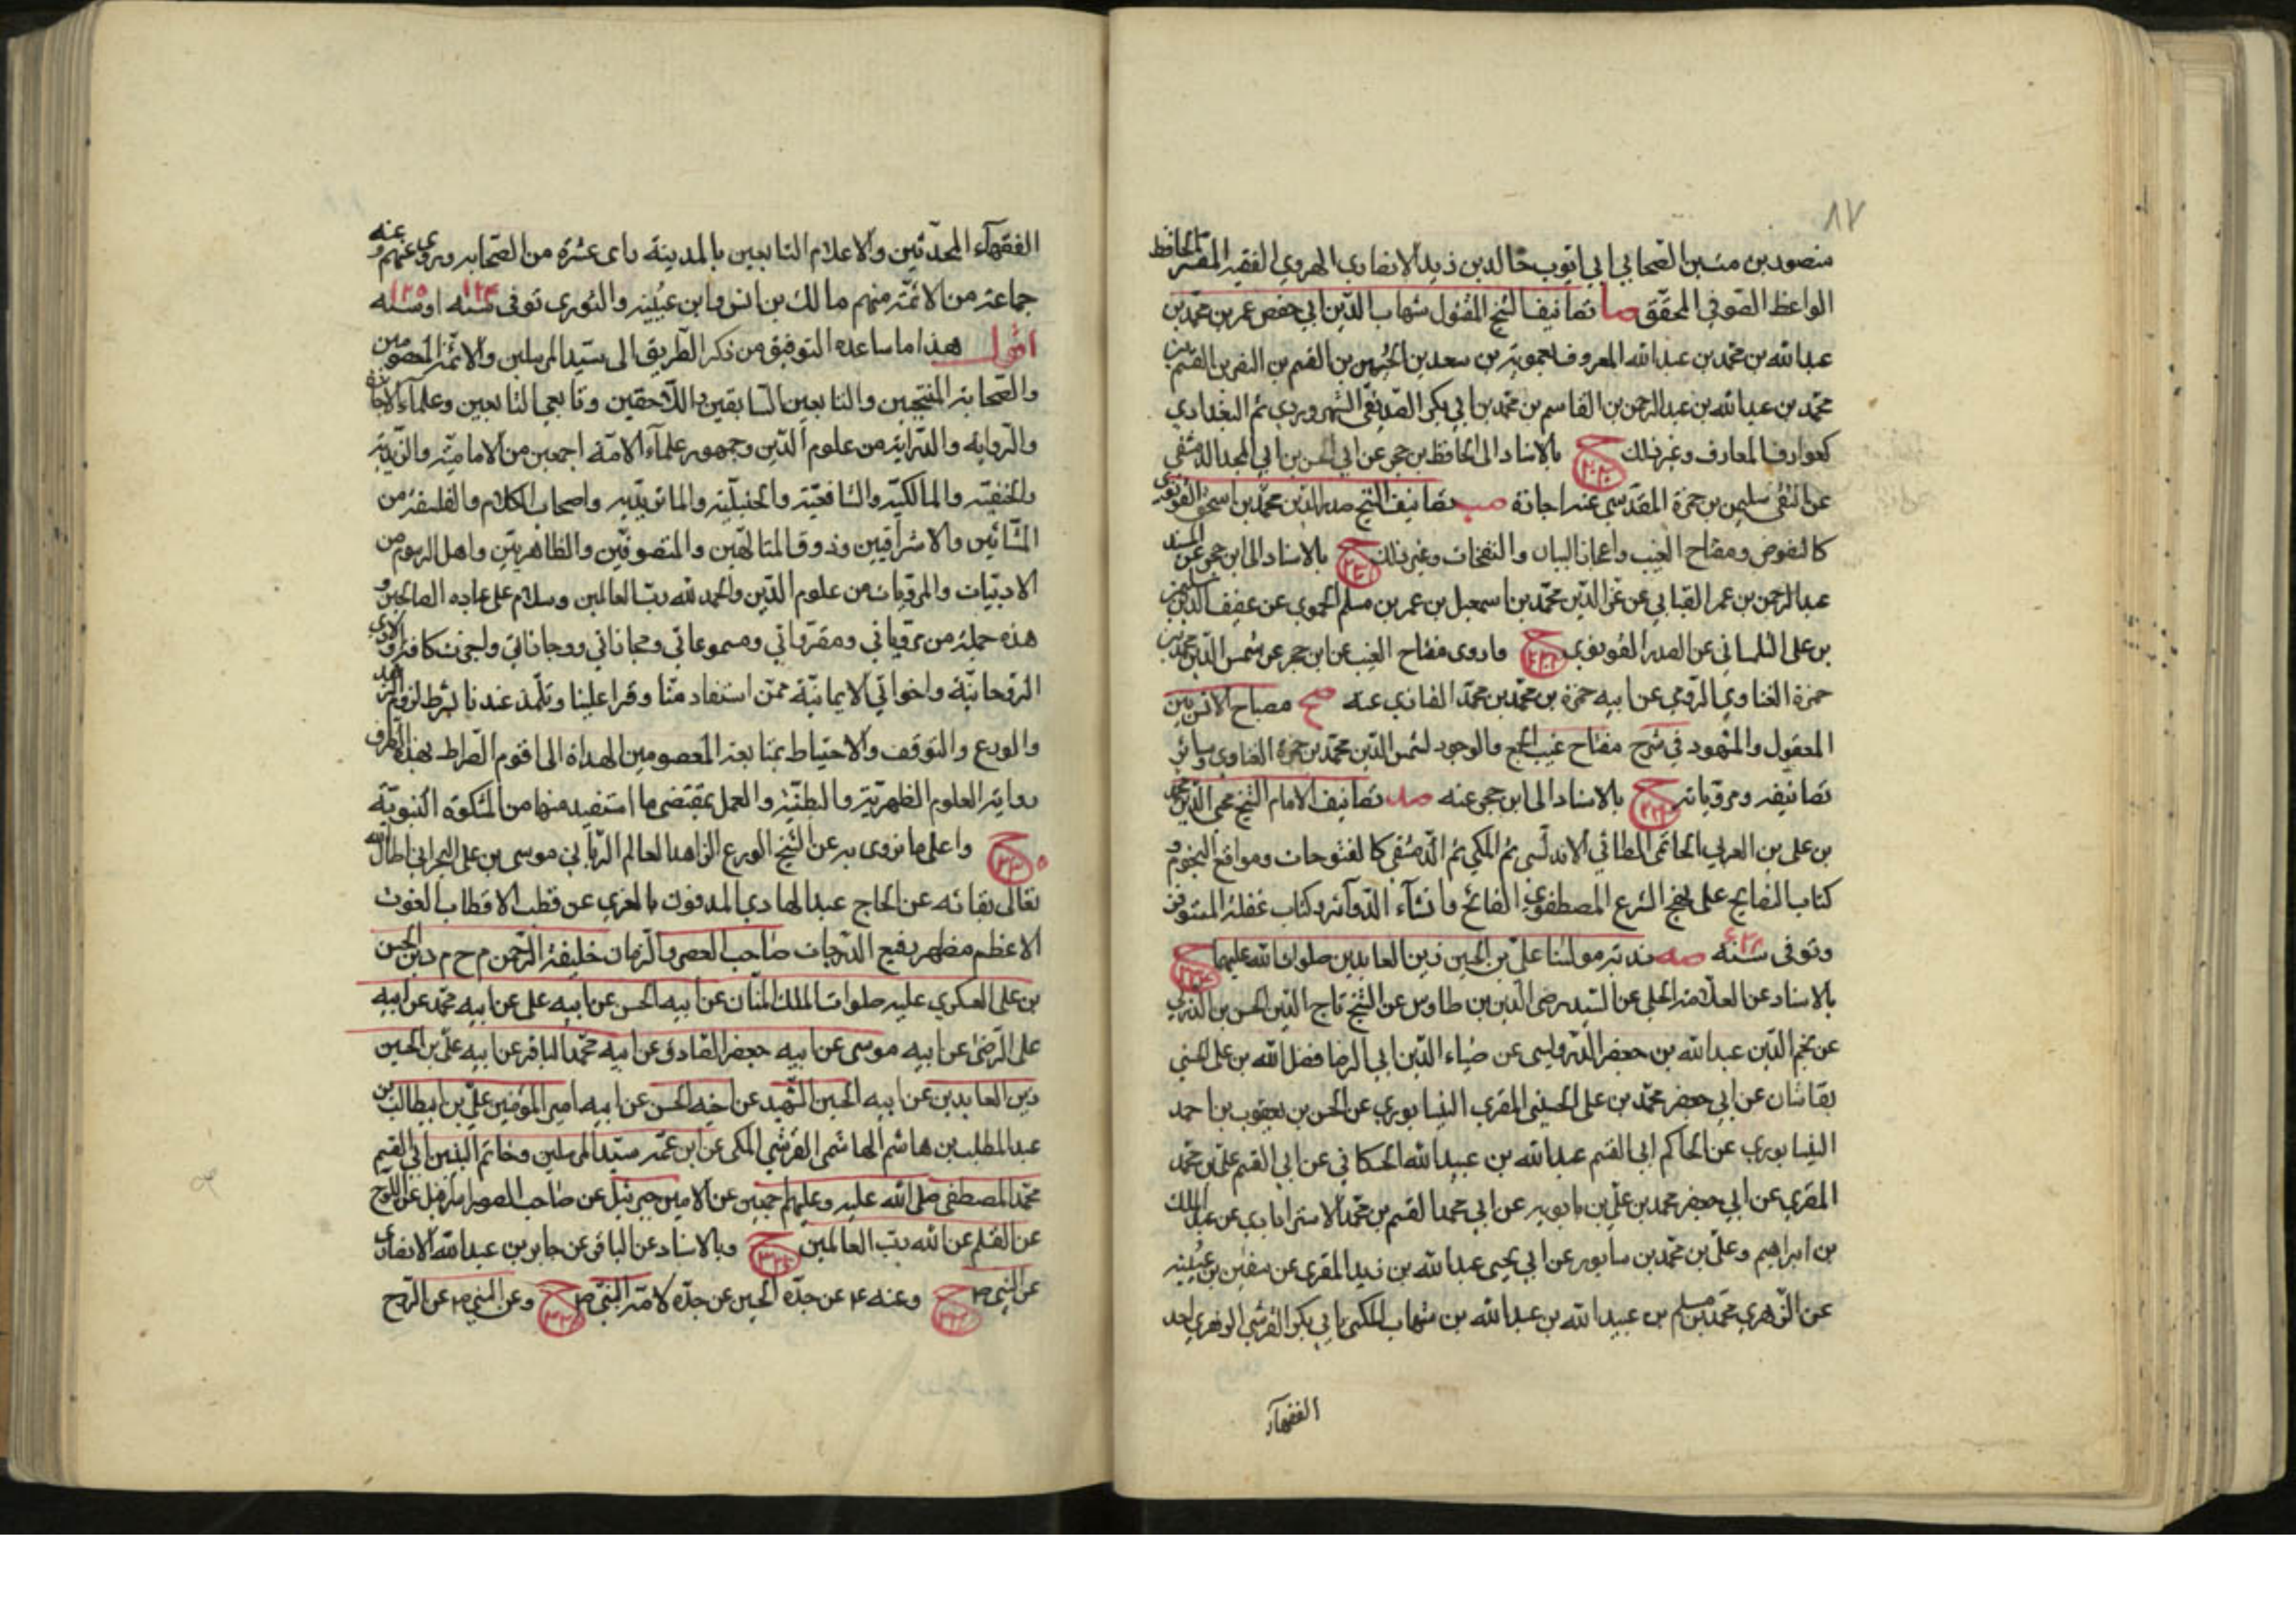 ٨٧
منصور بن مت بن الصحابي ابي ايوب خالد بن زيد الانصاري الهروي الفقيه المفسر الحافظ
الواعظ الصوفي المحقق صا تصانيف الشيخ المقتول شهاب الدين ابي حفص عمر بن محمد بن
عبد الله بن محمد بن عبد الله المعروف بعمويه بن سعد بن الحسين بن القسم بن النضر بن القسم بن
محمد بن عبد الله بن عبد الرحمن بن القاسم بن محمد بن ابي بكر الصديقي السهروردي ثم البغدادي
كعوارف المعارف وغير ذلك ح بالاسناد الى الحافظ بن حجر عن ابي الحسن بن ابي المجد الدمشقي
عن التقي سليمن بن حمزة المقدسي عنه اجازة صب تصانيف الشيخ صدر الدين محمد بن اسحق القونوي
كالفصوص ومفتاح الغيب واعجاز البيان والنفحات وغير ذلك ح بالاسناد الى ابن حجر عن المسند
عبد الرحمن بن عمر القبابي عن عز الدين محمد بن اسمعيل بن عمر بن مسلم الحموي عن عفيف الدين سليمن
بن علي التلمساني عن الصدر القونوي ح واروى مفتاح الغيب عن ابن حجر عن شمس الدين محمد بن
حمزة الفناوي الرومي عن ابيه حمزة بن محمد بن محمد الفناري عنه صح مصباح الانس بين
المعقول والمشهود في شرح مفتاح غيب الجمع والوجود لشمس الدين محمد بن حمزة الفناوي وسائر
تصانيفه ومروياته ح بالاسناد الى ابن حجر عنه صد تصانيف الامام الشيخ محي الدين محمد
بن علي بن العربي الحاتمي الطائي الاندلسي ثم المكي ثم الدمشقي كالفتوحات ومواقع النجوم و
كتاب النصايح على نهج الشرع المصطفوي الفائح وانشاء الدوآئر وكتاب عقلة المستوفز
وتوفى سنه ٦٣٨ صه ندبة مولينا علي بن الحسين زين العابدين صلوات الله عليهما ح
بالاسناد عن العلامة الحلي عن السيد رضي الدين بن طاوس عن الشيخ تاج الدين الحسن بن الدربي
عن نجم الدين عبد الله بن جعفر الدرويسي عن ضياء الدين ابي الرضا فضل الله بن علي الحسني
بقاشان عن ابي جعفر محمد بن علي الحسيني المقري النيسابوري عن الحسن بن يعقوب بن احمد
النيسابوري عن الحاكم ابي القسم عبد الله بن عبيد الله الحسكاني عن ابي القسم علي بن محمد
المقري عن ابي جعفر محمد بن علي بن بابويه عن ابي محمد القسم بن محمد الاسترابادي عن عبد الملك
بن ابراهيم وعلي بن محمد بن سابور عن ابي يحيى عبد الله بن زيد المقرى عن سفين بن عيينه
عن الزهري محمد بن مسلم بن عبيد الله بن عبد الله بن شهاب المكنى بابي بكر القرشي الزهري احد
الفقهآء
الفقهآء المحدثين والاعلام التابعين بالمدينة راى عشرة من الصحابه وروى عنهم و عنه
جماعة من الائمة منهم مالك بن انس وابن عيينه والثوري توفى سنه ١٢٤ او سنه ١٢٥
اقول هذا ما ساعده التوفيق من ذكر الطريق الى سيد المرسلين والائمة المعصومين
والصحابة المنتجبين والتابعين السابقين واللاحقين وتابعي التابعين وعلماء الاجازة
والروايه والدراية من علوم الدين وجمهور علمآء الامة اجمعين من الامامية والزيدية
والحنفية والمالكية والشافعية والحنبلية والماتريديه واصحاب الكلام والفلسفة من
المشائين والاشراقيين وذوق المتالهين والمتصوفين والظاهريين واهل الرسوم من
الادبيات والمرويات من علوم الدين والحمد لله رب العالمين وسلام على عباده الصالحين و
هذه جملة من مروياتي ومقرواتي ومسموعاتي ومجازاتي ووجاداتي واجزت لكافة اولادي
الروحانية واخواني الايمانية ممن استفاد منا وقرا علينا وتلمذ عندنا بشرط لزوم الزهد
والورع والتوقف والاحتياط بمتابعة المعصومين الهداة الى اقوم الصراط بهذه الطرف
رواية العلوم الظهرية والبطنية والعمل بمقتضى ما استفيد منها من المشكوة النبوية
ح واعلى ما نروى به عن الشيخ الورع الزاهد العالم الرباني موسى بن علي البحراني اطال الله
تعالى بقائه عن الحاج عبد الهادي المدفون بالغري عن قطب الاقطاب الغوث
الاعظم مظهر رفيع الدرجات صاحب العصر والزمان خليفة الرحمن م ح م د بن الحسن
بن علي العسكري عليه صلوات الملك المنان عن ابيه الحسن عن ابيه علي عن ابيه محمد عن ابيه
علي الرضى عن ابيه موسى عن ابيه جعفر الصادق عن ابيه محمد الباقر عن ابيه علي بن الحسين
زين العابدين عن ابيه الحسين الشهيد عن اخيه الحسن عن ابيه امير المؤمنين علي بن ابيطالب بن
عبد المطلب بن هاشم الهاشمى القرشي المكي عن ابن عمه سيد المرسلين وخاتم النبيين ابي القسم
محمد المصطفى صلى الله عليه وعليهم اجمعين عن الامين جبرئيل عن صاحب الصور اسرافيل عن اللوح
عن القلم عن الله رب العالمين ح وبالاسناد عن الباقر عن جابر بن عبد الله الانصاري
عن النبي ص ح وعنه ع عن جده الحسين عن جده لامه النبي ص ح وعن النبي ص عن الروح